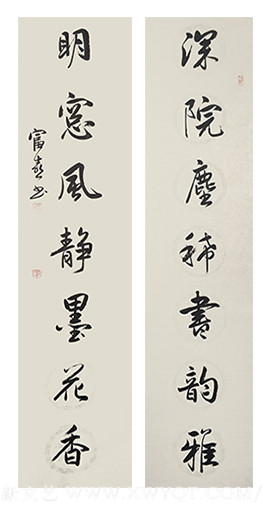 深院塵稀書韵雅
明窓風静墨花香
富春书
新文艺 www.xwyqi.com/